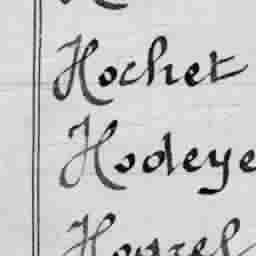 Hochet
Hodeye